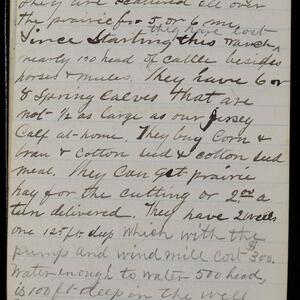 they are scattered all over
the prairie for 5 or 6 mi
they have lost
Since starting this ranch
nearly 100 head of cattle besides
horses & mules. They have 6 or
8 Spring Calves that are
not ½ as large as our Jersey
Calf at home. They buy Corn &
bran & cotton seed & cotton seed
meal. They Can get prairie
hay for the cutting or 2.00 a
ton delivered. They have 2 wells
one 125 ft deep which with the
pump and wind mill cost $300.
Water enough to water 500 head,
is 100 ft deep in the well